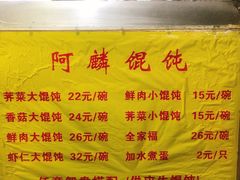 阿麟馄饨
荠菜大馄饨 22元/碗 鲜肉小馄饨 15元/碗
香菇大馄饨 24元/碗 荠菜小馄饨 15元/碗
鲜肉大馄饨 26元/碗 全家福 26元/碗
虾仁大馄饨 32元/碗 加水煮蛋 2元/只